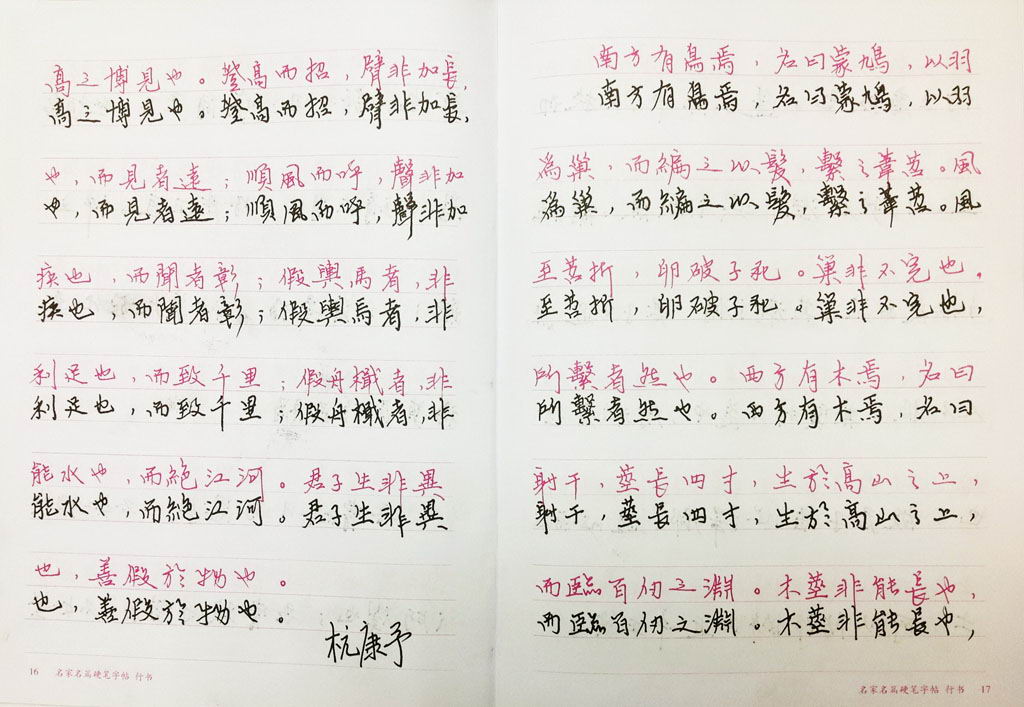 高之博見也。登高而招，臂非加長，
高之博見也。登高而招，臂非加長，
也，而見者遠；順風而呼，聲非加
也，而見者遠；順風而呼，聲非加
疾也，而聞者彰；假輿馬者，非
疾也，而聞者彰；假輿馬者，非
利足也，而致千里；假舟檝者，非
利足也，而致千里；假舟檝者，非
能水也，而絶江河。君子生非異
能水也，而絶江河。君子生非異
也，善假於物也。
也，善假於物也。
杭康予
16 名家名篇硬笔字帖 行书
南方有鳥焉，名曰蒙鳩，以羽
南方有鳥焉，名曰蒙鳩，以羽
為巢，而編之以髮，繫之葦苕。風
為巢，而編之以髮，繫之葦苕。風
至苕折，卵破子死。巢非不完也。
至苕折，卵破子死。巢非不完也，
所繫者然也。西方有木焉，名曰
所繫者然也。西方有木焉，名曰
射干，莖長四寸，生於高山之上，
射干，莖長四寸，生於高山之上，
而臨百仞之淵。木莖非能長也，
而臨百仞之淵。木莖非能長也，
名家名篇硬笔字帖 行书 17